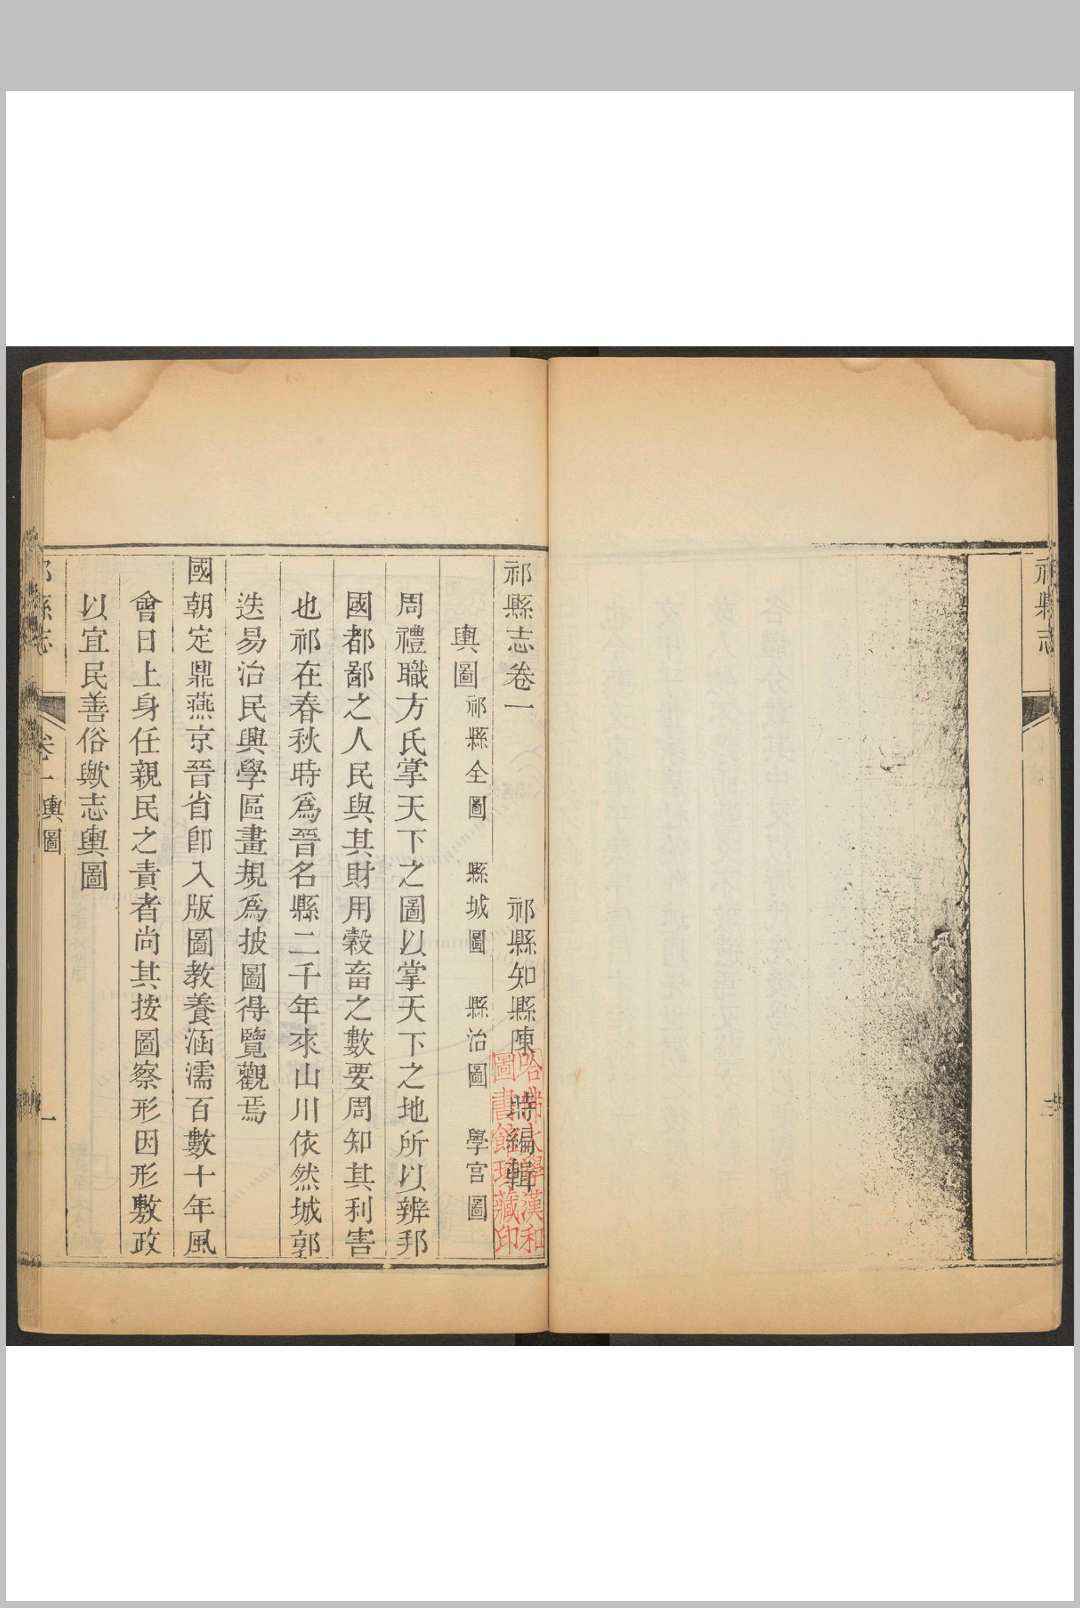 祁縣志
祁縣志卷一　祁縣知縣陳　時編輯
輿圖　祁縣全圖　縣城圖　縣治圖　學宮圖
周禮職方氏掌天下之圖以掌天下之地所以辨邦
國都鄙之人民與其財用穀畜之數要周知其利害
也祁在春秋時爲晉名縣二千年來山川依然城郭
迭易治民興學區畫規爲披圖得覽觀焉
國朝定鼎燕京晉省卽入版圖教養涵濡百數十年風
會日上身任親民之責者尚其按圖察形因形敷政
以宜民善俗歟志輿圖
祁縣志　卷一　輿圖　一
哈佛大學漢和
圖書館珍藏印